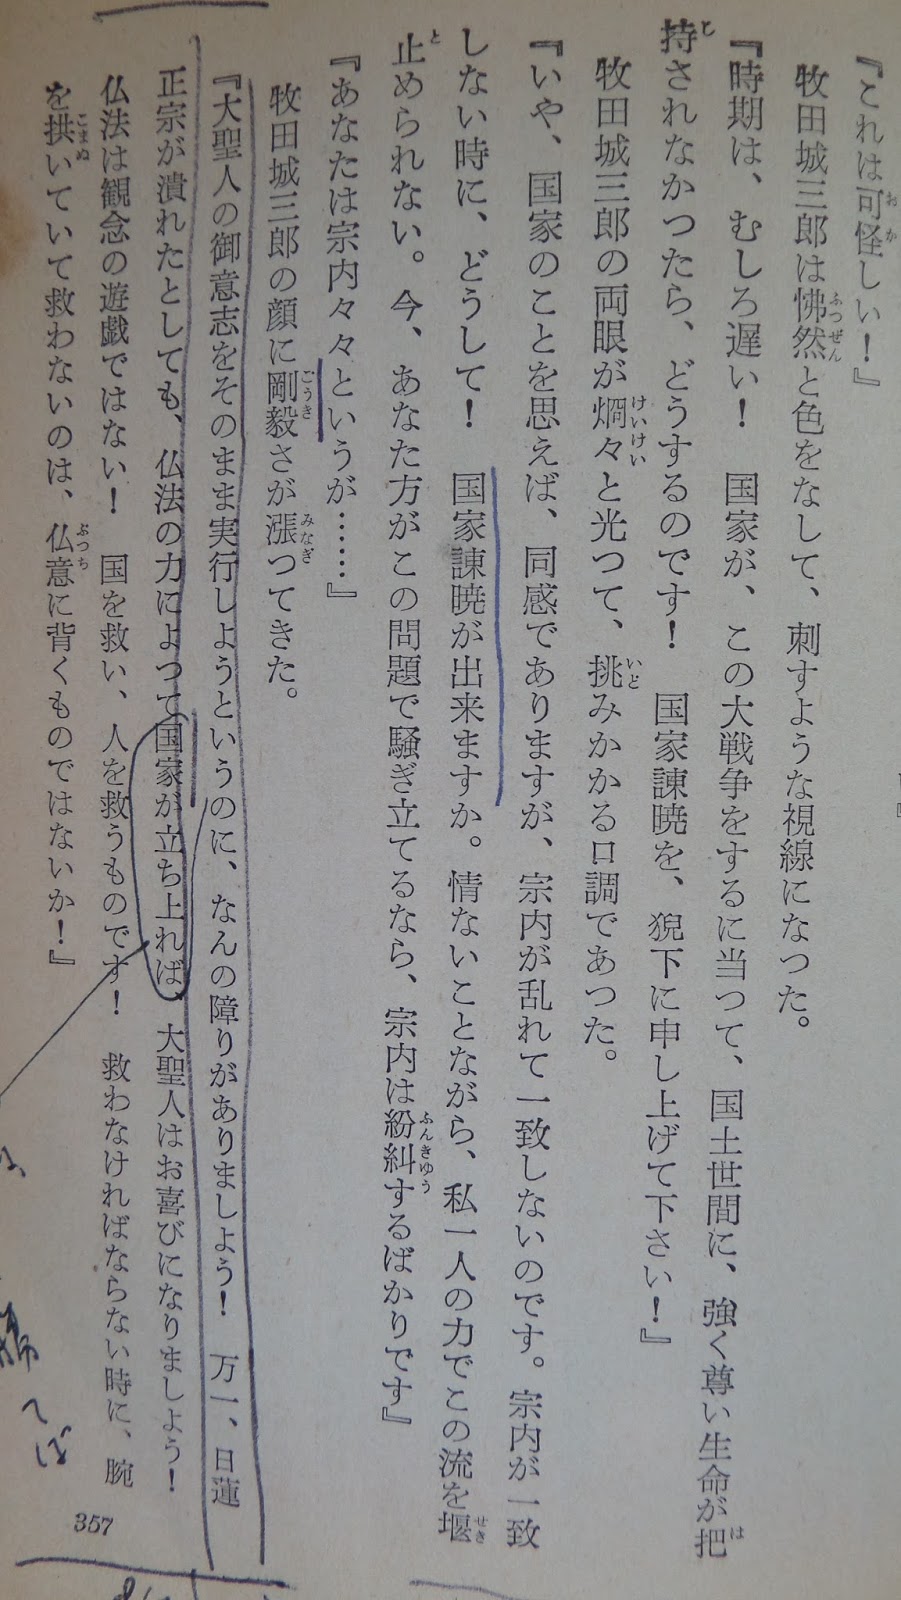 『これは可怪しい！』
牧田城三郎は怫然と色をなして、刺すような視線になつた。
『時期は、むしろ遅い！　国家が、この大戦争をするに当つて、国土世間に、強く尊い生命が把
持されなかつたら、どうするのです！　国家諌暁を、猊下に申し上げて下さい！』
牧田城三郎の両眼が烱々と光つて、挑みかかる口調であつた。
『いや、国家のことを思えば、同感でありますが、宗内が乱れて一致しないのです。宗内が一致
しない時に、どうして！　国家諌暁が出来ますか。情ないことながら、私一人の力でこの流を堰
止められない。今、あなた方がこの問題で騒ぎ立てるなら、宗内は紛糾するばかりです』
『あなたは宗内々々というが……』
牧田城三郎の顔に剛毅さが漲つてきた。
『大聖人の御意志をそのまま実行しようというのに、なんの障りがありましよう！　万一、日蓮
正宗が潰れたとしても、仏法の力によつて国家が立ち上れば、大聖人はお喜びになりましよう！
仏法は観念の遊戯ではない！　国を救い、人を救うものです！　救わなければならない時に、腕
を拱いていて救わないのは、仏意に背くものではないか！』
357